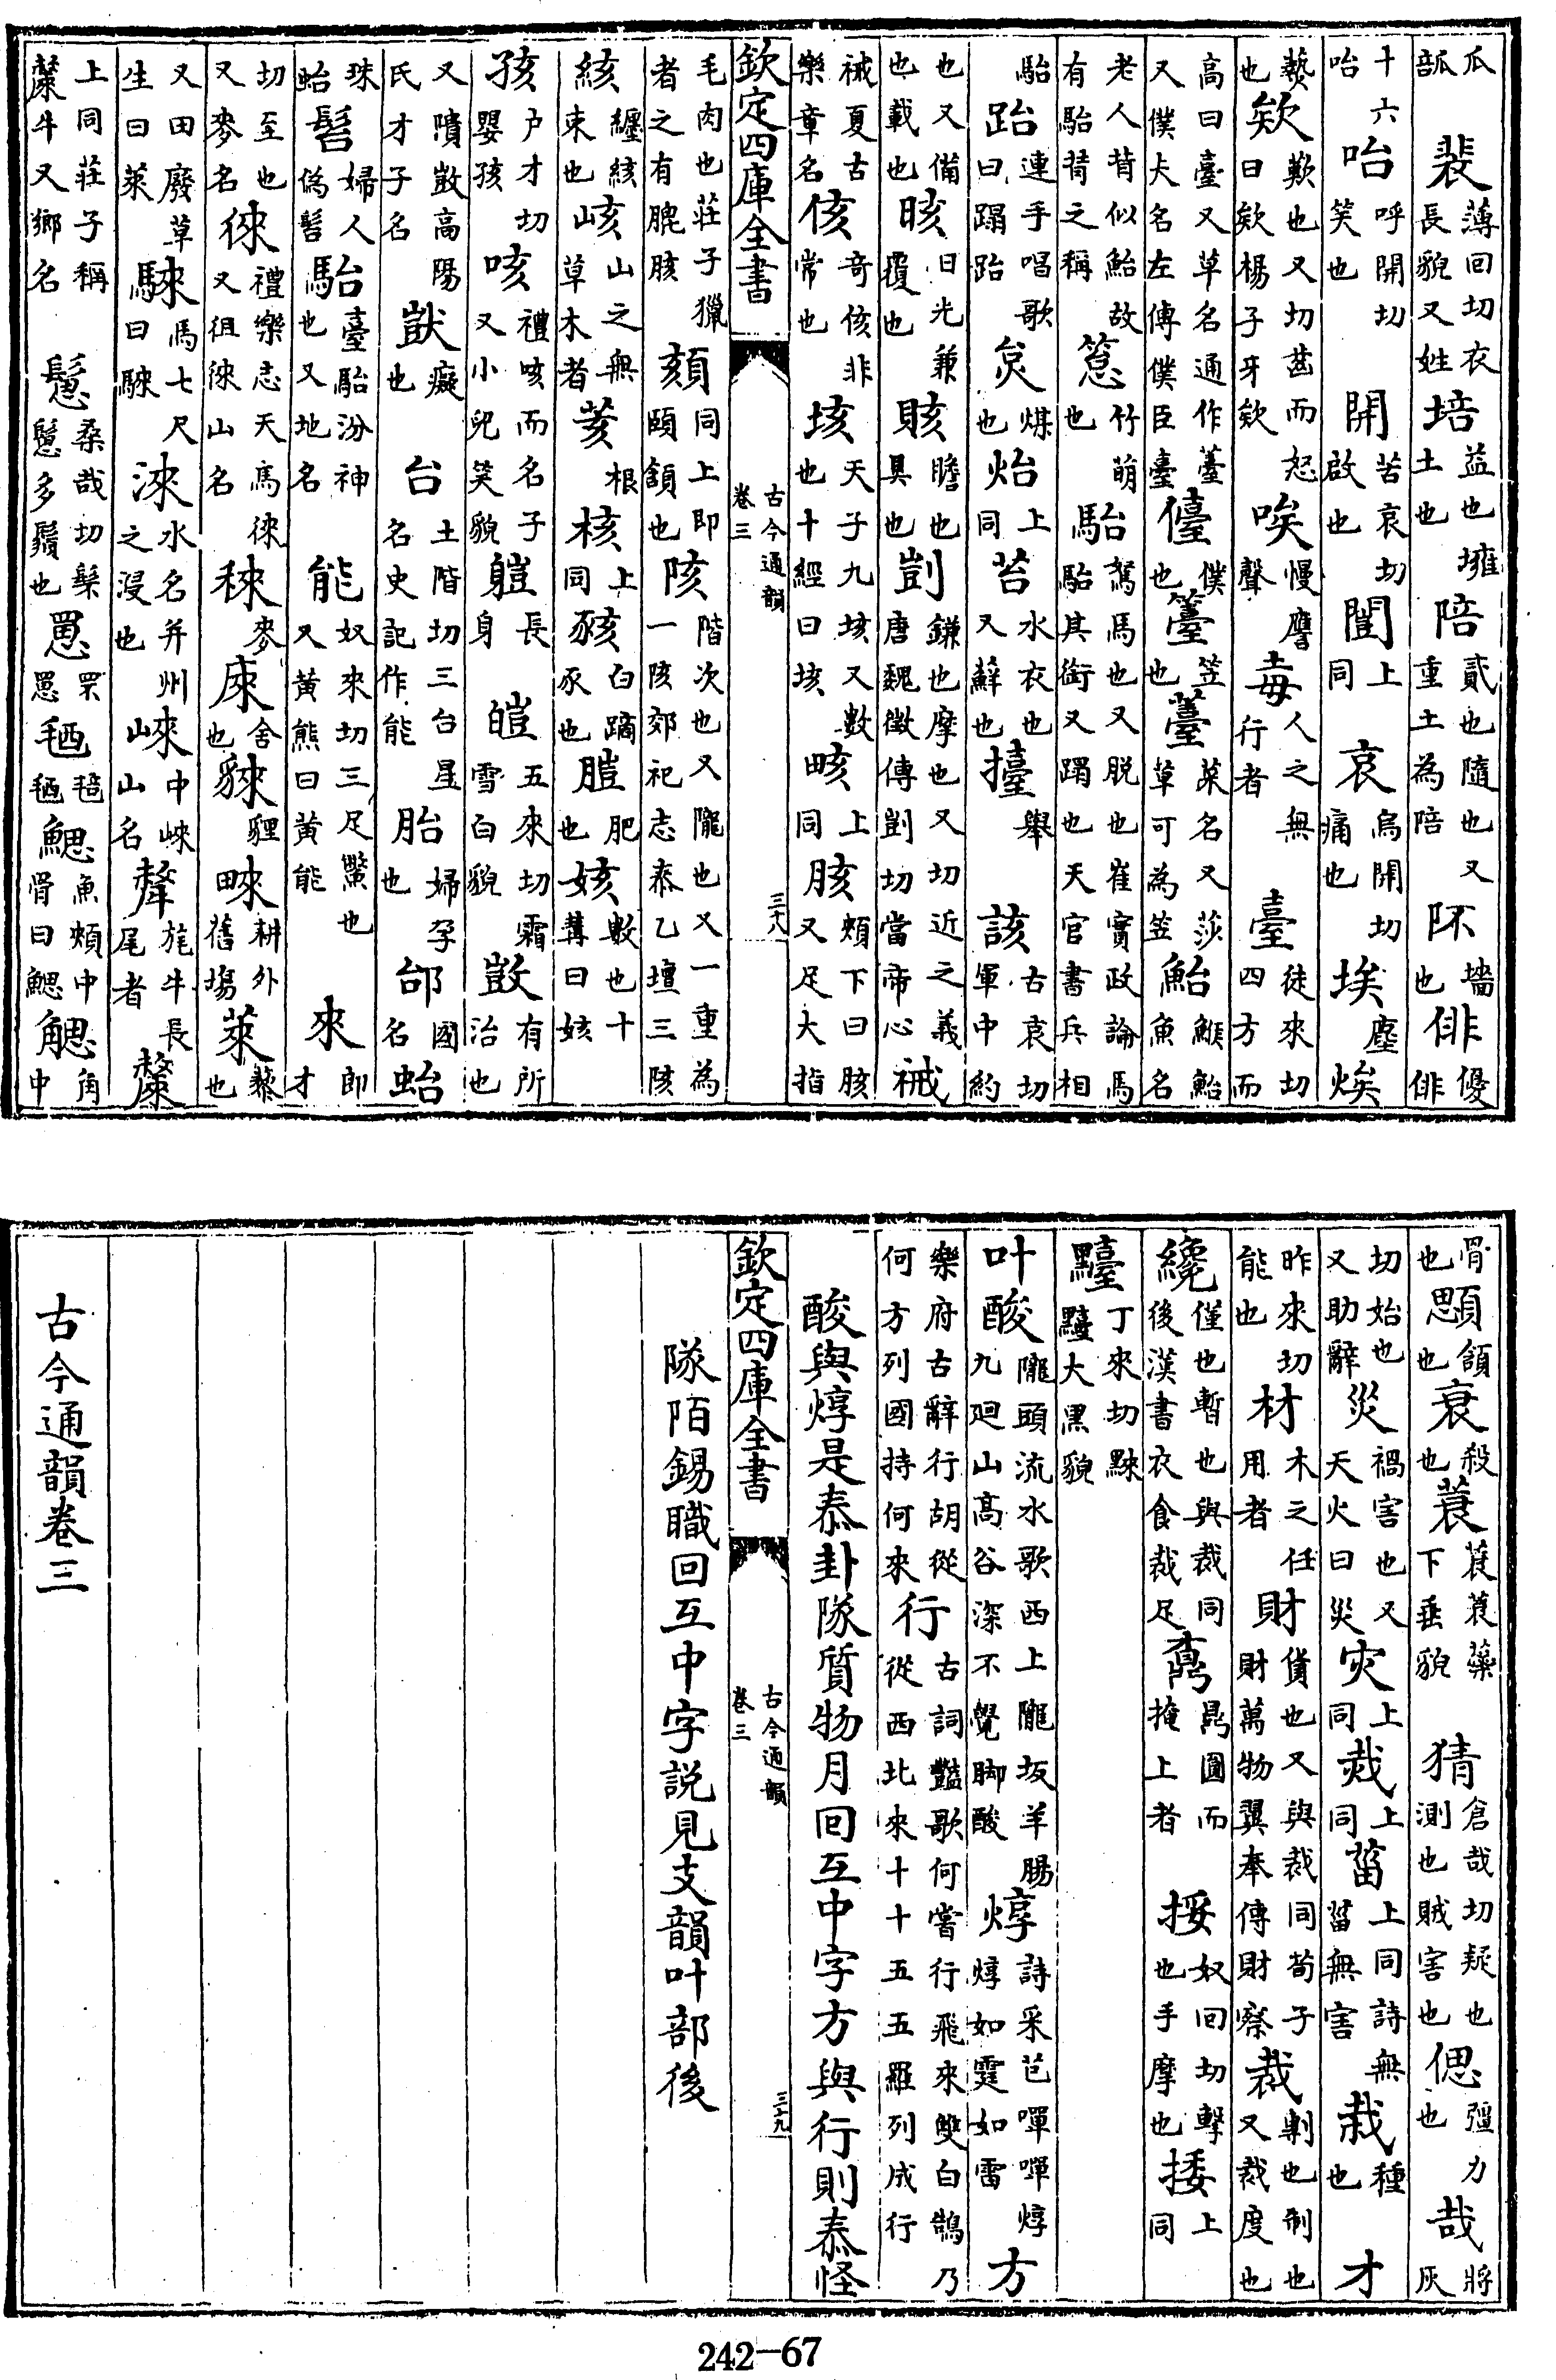 瓜 裴薄回切衣長貌又姓培益也墉土也陪貳也隨也又重土為陪阫墻也俳優俳
十六咍 咍呼開切笑也 開苦哀切啟也闓上同 哀烏開切痛也 埃塵
爇也欸歎也又切甚而怒曰欸楊子牙欸唉慢譍聲毐人之無行者 臺徒來切四方而
高曰臺又草名通作薹又僕夫名左傳僕臣臺儓僕也籉笠也薹菜名又莎草可為笠鮐鯸鮐魚名
老人背似鮐故有駘背之稱䈚竹萌也駘駑馬也又脫也崔實政論馬駘其銜又蹋也天官書兵相
駘跆連手唱歌曰蹋跆炱煤也炲上同苔水衣也又蘚也擡舉 該古哀切軍中約
也又備也載也晐日光兼覆也賅贍也具也剴鎌也摩也又切近之義唐魏徵傳剴切當帝心祴
祴夏古樂章名侅奇侅非常也垓天子九垓又數也十經曰垓畡上同胲頰下曰胲又足大指
欽定四庫全書 古今通韻卷三 三十八
毛肉也莊子獵者之有膍胲頦同上即頤頷也陔階次也又隴也又一重為一陔郊祀志泰乙壇三陔
絯纏絯束也峐山之無草木者荄根核上同豥白蹢豕也肥也姟數也十冓曰姟
孩戶才切嬰孩咳禮咳而名子又小兒笑貌長身 皚五來切霜雪白貌敳有所治也
又隤敳高陽氏才子名獃癡也 台土階切三台星名史記作能胎婦孕也邰國名
珠 婦人偽髻駘臺駘汾神也又地名 能奴來切三足鼈也又黃熊曰黃能 來郎才
切至也又麥名徠禮樂志天馬徠又徂徠山名䅘麥庲舍也貍耕外舊場萊藜也
又田廢草生曰萊騋馬七尺曰騋淶水名并州之浸也崍中崍山名旄牛長尾者斄
上同莊子稱斄牛又鄉名 䰄桑哉切䰄多鬚也罳罘罳毢毰毢鰓魚頰中骨曰鰓䚡角中
骨也顋頷也衰殺也蓑蓑蓑蘂下垂貌 猜倉哉切疑也測也賊害也偲彊力也哉將灰
切始也又助辭災禍害也又天火曰災灾上同烖上同菑上同詩無菑無害栽種也 才
昨來切能也材木之任用者財貨也又與裁同荀子財萬物翼奉傳財察裁剸也制也又裁度也
纔僅也暫也與裁同後漢書衣食裁足鼒鼎圜而掩上者 挼奴回切擊也手摩也捼上同
丁來切大黑貌
叶酸隴頭流水歌西上隴坂羊腸九廻山高谷深不覺脚酸焞詩采芑嘽嘽焞焞如霆如雷 方
樂府古辭行胡從何方列國持何來行古詞豔歌何嘗行飛來雙白鵠乃從西北來十十五五羅列成行
酸與焞是泰卦隊質物月回互中字方與行則泰怪
欽定四庫全書 古今通韻卷三 三十九
隊陌錫職回互中字說見支韻叶部後
古今通韻卷三
242-67